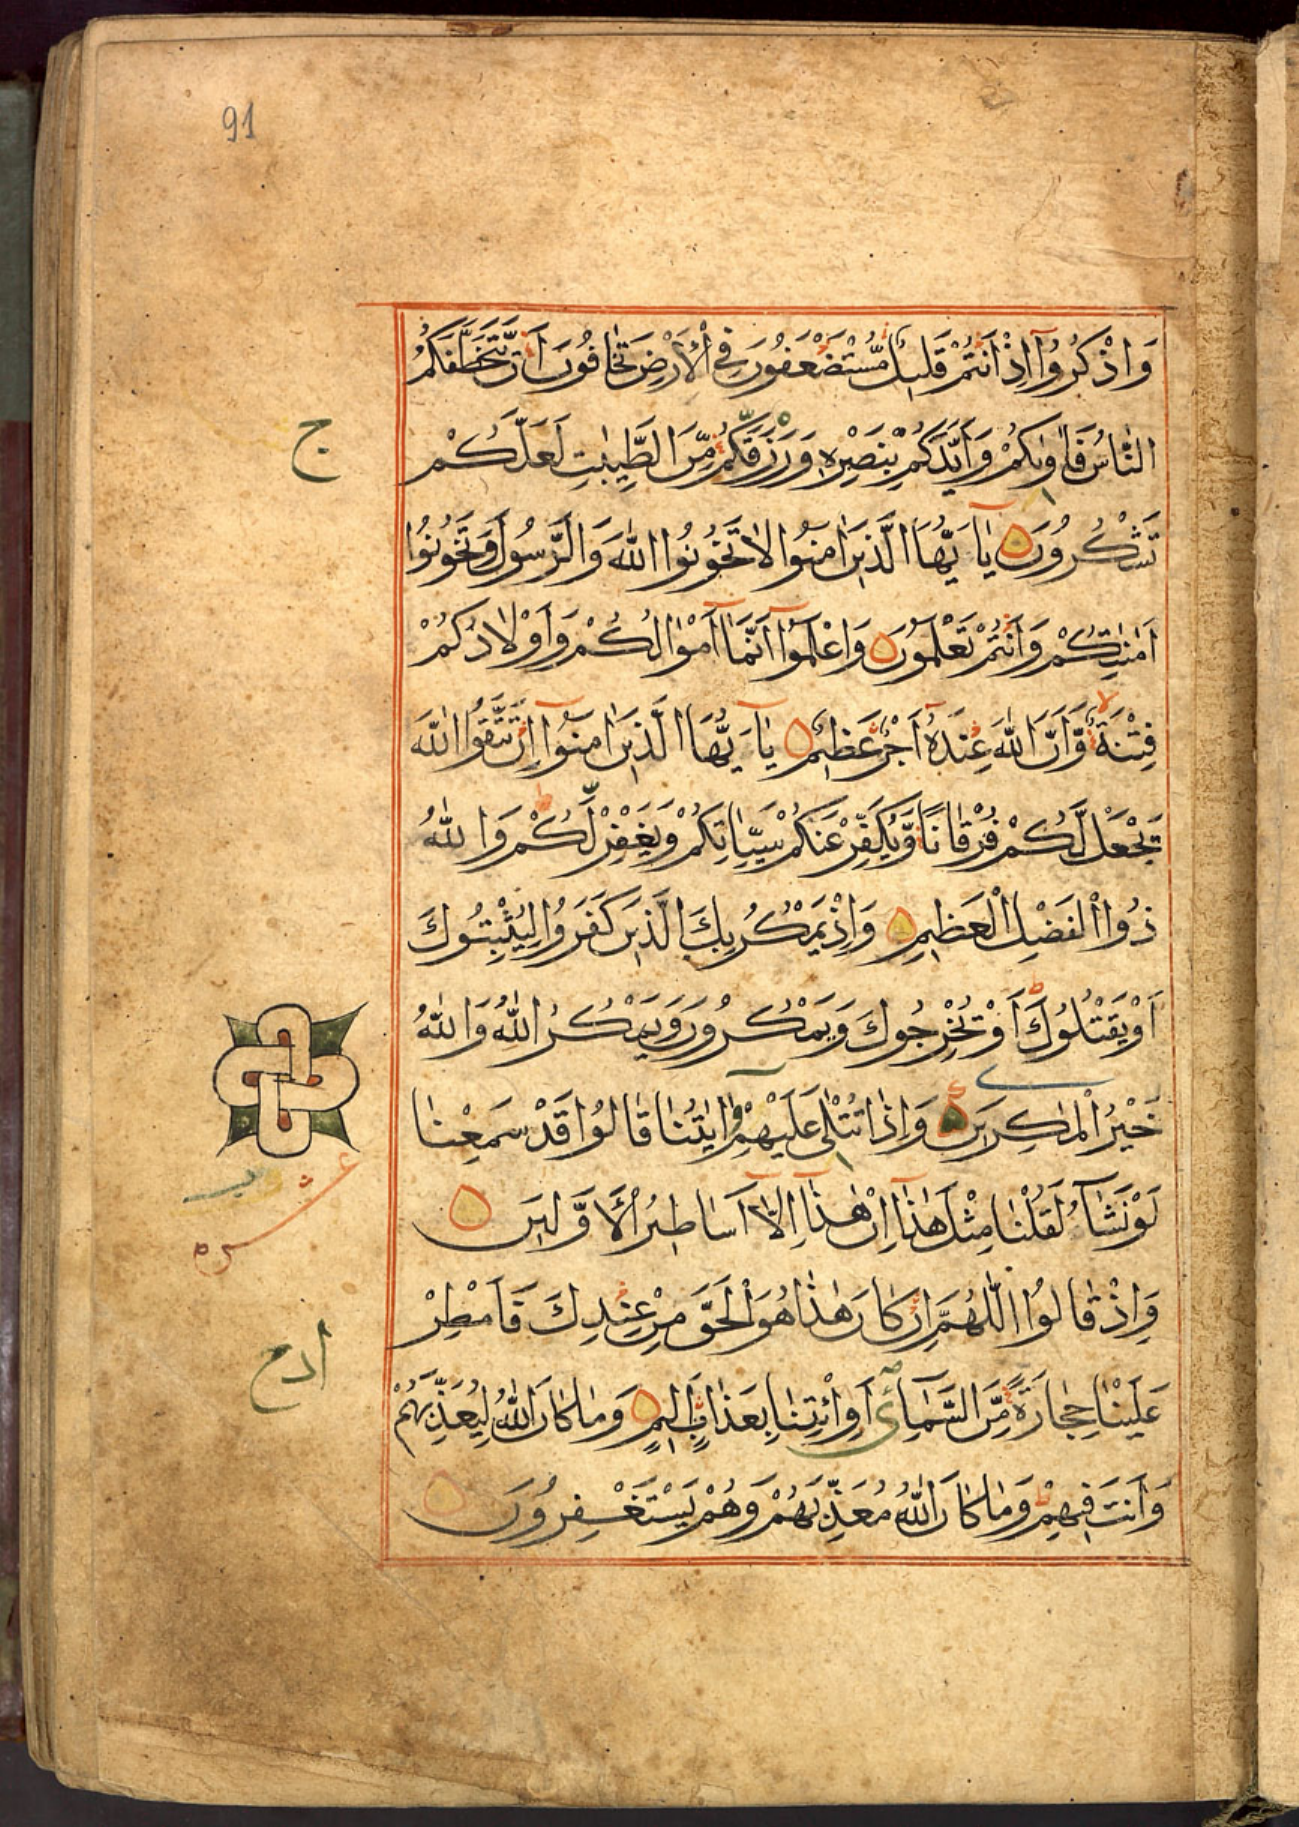 91
وَاذْكُرُوٓا اِذْ اَنْتُمْ قَلِيلٌ مُّسْتَضْعَفُونَ فِي الْاَرْضِ تَخَافُونَ اَنْ يَّتَخَطَّفَكُمُ
النَّاسُ فَاٰوٰىكُمْ وَاَيَّدَكُمْ بِنَصْرِهٖ وَرَزَقَكُمْ مِّنَ الطَّيِّبٰتِ لَعَلَّكُمْ
ج
تَشْكُرُونَ يٰٓاَيُّهَا الَّذِينَ اٰمَنُوا لَا تَخُونُوا اللّٰهَ وَالرَّسُولَ وَتَخُونُوٓا
اَمٰنٰتِكُمْ وَاَنْتُمْ تَعْلَمُونَ وَاعْلَمُوٓا اَنَّمَآ اَمْوَالُكُمْ وَاَوْلَادُكُمْ
فِتْنَةٌ وَّاَنَّ اللّٰهَ عِنْدَهٗٓ اَجْرٌ عَظِيمٌ يٰٓاَيُّهَا الَّذِينَ اٰمَنُوٓا اِنْ تَتَّقُوا اللّٰهَ
يَجْعَلْ لَّكُمْ فُرْقَانًا وَّيُكَفِّرْ عَنْكُمْ سَيِّاٰتِكُمْ وَيَغْفِرْ لَكُمْ وَاللّٰهُ
ذُوا الْفَضْلِ الْعَظِيمِ وَاِذْ يَمْكُرُ بِكَ الَّذِينَ كَفَرُوا لِيُثْبِتُوكَ
اَوْ يَقْتُلُوكَ اَوْ يُخْرِجُوكَ وَيَمْكُرُونَ وَيَمْكُرُ اللّٰهُ وَاللّٰهُ
خَيْرُ الْمٰكِرِينَ وَاِذَا تُتْلٰى عَلَيْهِمْ اٰيٰتُنَا قَالُوا قَدْ سَمِعْنَا
عشر
لَوْ نَشَآءُ لَقُلْنَا مِثْلَ هٰذَآ اِنْ هٰذَآ اِلَّآ اَسَاطِيرُ الْاَوَّلِينَ
وَاِذْ قَالُوا اللّٰهُمَّ اِنْ كَانَ هٰذَا هُوَ الْحَقَّ مِنْ عِنْدِكَ فَاَمْطِرْ
عَلَيْنَا حِجَارَةً مِّنَ السَّمَآءِ اَوِ ائْتِنَا بِعَذَابٍ اَلِيمٍ وَمَا كَانَ اللّٰهُ لِيُعَذِّبَهُمْ
وَاَنْتَ فِيهِمْ وَمَا كَانَ اللّٰهُ مُعَذِّبَهُمْ وَهُمْ يَسْتَغْفِرُونَ